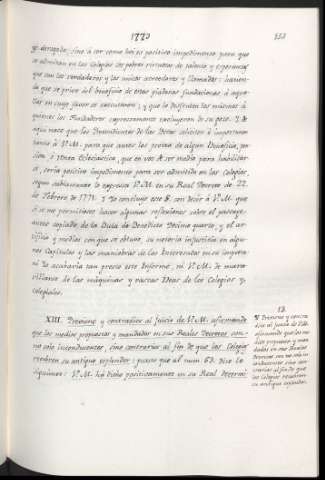 1773
333
se derogado, sino à ser como hoi es positivo impedimento para que
se admitan en los Colegios los pobres virtuosos de talento y esperanza,
que son los verdaderos y los unicos acreedores y llamados: hacien-
do que se prive del beneficio de estas piadosas fundaciones à aque-
llos en cuyo favor se executaron; y que lo disfruten los mismos à
quienes los Fundadores expresamente excluyeron de su goze. Y de
aqui nace que los Pretendientes de las Becas soliciten è importunen
tanto à V.M. para que antes los provea de algun Beneficio, pen-
sion, ò Renta Eclesiastica, que en vez de ser medio para habilitar-
se, seria positivo impedimento para ser admitido en los Colegios,
segun sabiamente lo expresa V.M. en su Real Decreto de 22.
de Febrero de 1771. Y Yo concluyo este §. con decir à V.M. que
si se me permitiese hacer algunas reflexiones sobre el pasage
antes copiado de la Bula de Benedicto Decimo quarto, y el ar-
tificio y medios con que se obtuvo, su notoria injusticia en algu-
nos Capitulos y las maniobras de los Interesados en su impetra
ni Yo acabaria tan presto este Informe, ni V.M. de maravi-
llarse de las maquinas y
de los Colegios y
Colegiales.
XIII. Previene y contradice al juicio de V.M. afirmando
que los medios propuestos y mandados en sus Reales Decretos son
no solo inconducentes, sino contrarios al fin de que los Colegios
recobren su antiguo esplendor: pues que al num. 63. dice lo
siguiente: V.M. há dicho positivamente en su Real Determi-
13.
Previene y contra-
dice al juicio de V.M.
afirmando que los me-
dios propuestos y man-
dados en sus Reales
Decretos son no solo in-
conducentes, sino con-
trarios al fin de que
los Colegios recobren
su antiguo esplendor.